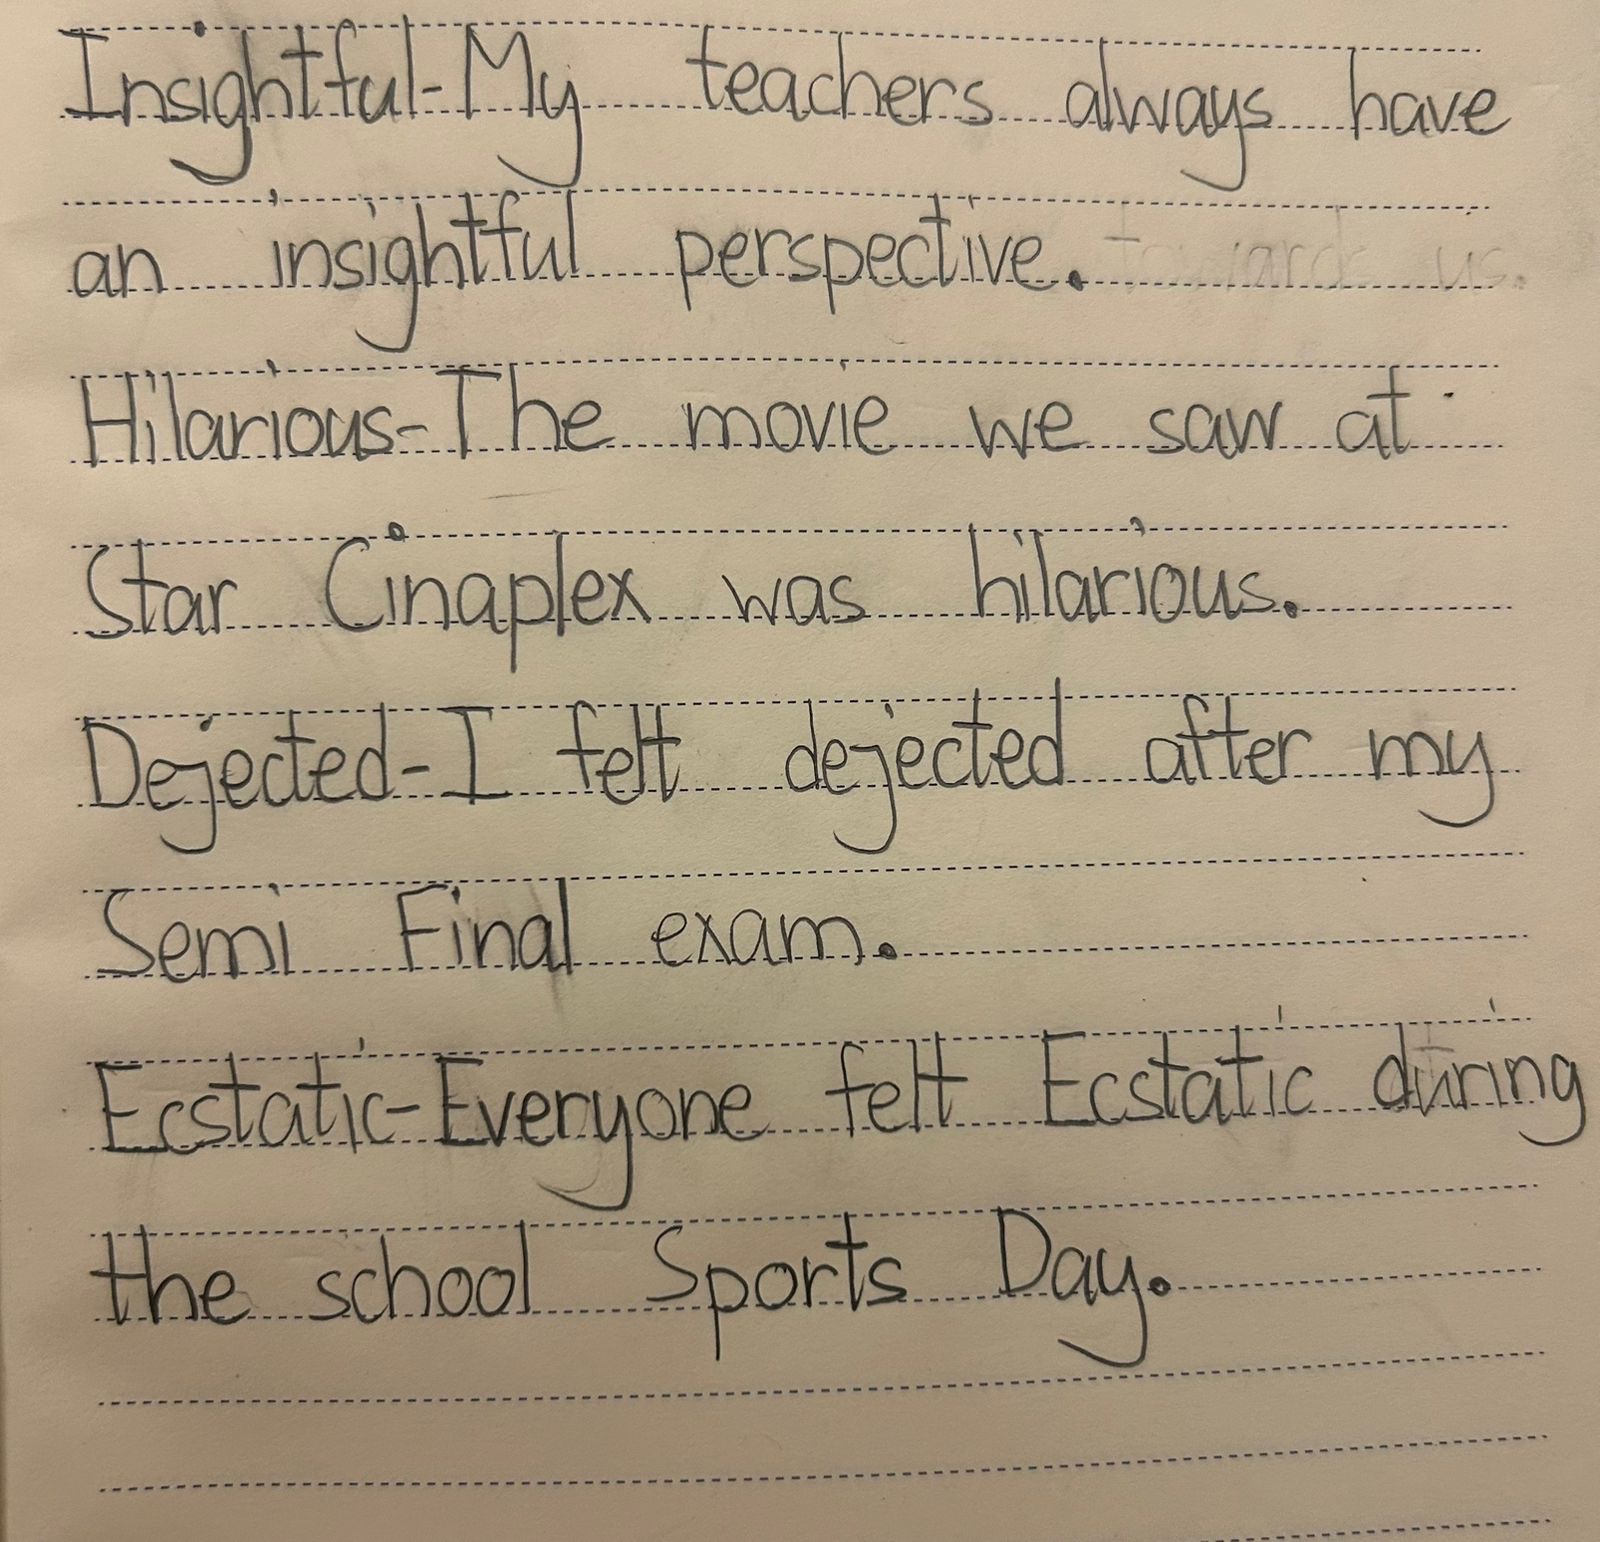 Insightful-My teachers always have
an insightful perspective.
Hilarious-The movie we saw at
Star Cinaplex was hilarious.
Dejected-I felt dejected after my
Semi Final exam.
Ecstatic-Everyone felt Ecstatic during
the school Sports Day.